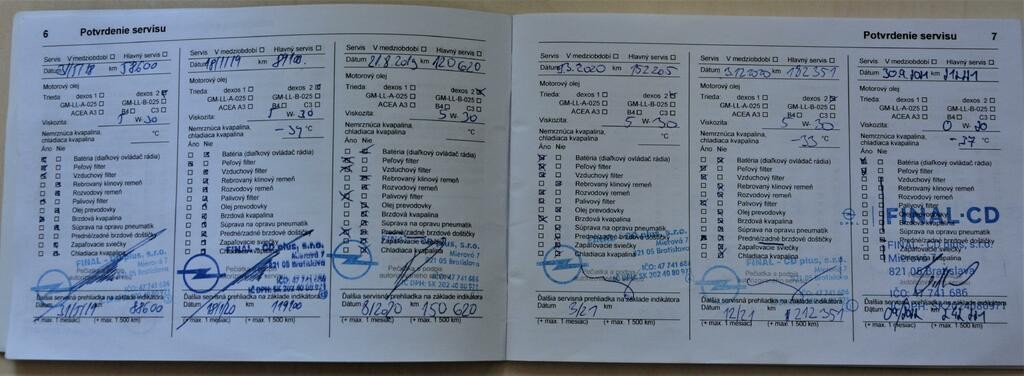 6 Potvrdenie servisu
Servis V medziobdobí Hlavný servis
Dátum km 58600
Motorový olej
Trieda: dexos 1 dexos 2
GM-LL-A-025 GM-LL-B-025
ACEA A3 B4 C3
Viskozita: 5 W-30
Nemrznúca kvapalina,
chladiaca kvapalina °C
Áno Nie
Batéria (diaľkový ovládač rádia)
Peľový filter
Vzduchový filter
Rebrovaný klinový remeň
Rozvodový remeň
Palivový filter
Olej prevodovky
Brzdová kvapalina
Súprava na opravu pneumatík
Predné/zadné brzdové doštičky
Zapaľovacie sviečky
Chladiaca kvapalina
Ďalšia servisná prehliadka na základe indikátora
Dátum km
(+ max. 1 mesiac) (+ max. 1 500 km)
Servis V medziobdobí Hlavný servis
Dátum km
Motorový olej
Trieda: dexos 1 dexos 2
GM-LL-A-025 GM-LL-B-025
ACEA A3 B4 C3
Viskozita: W-30
Nemrznúca kvapalina,
chladiaca kvapalina °C
Áno Nie
Batéria (diaľkový ovládač rádia)
Peľový filter
Vzduchový filter
Rebrovaný klinový remeň
Rozvodový remeň
Palivový filter
Olej prevodovky
Brzdová kvapalina
Súprava na opravu pneumatík
Predné/zadné brzdové doštičky
Zapaľovacie sviečky
Chladiaca kvapalina
FINAL - CD plus, s.r.o.
Mierová 7
821 05 Bratislava
IČO: 47 741 686
Ďalšia servisná prehliadka na základe indikátora
Dátum km
(+ max. 1 mesiac) (+ max. 1 500 km)
Servis V medziobdobí Hlavný servis
Dátum 21.8.2019 km 120 620
Motorový olej
Trieda: dexos 1 dexos 2
GM-LL-A-025 GM-LL-B-025
ACEA A3 B4 C3
Viskozita: 5 W-30
Nemrznúca kvapalina,
chladiaca kvapalina °C
Áno Nie
Batéria (diaľkový ovládač rádia)
Peľový filter
Vzduchový filter
Rebrovaný klinový remeň
Rozvodový remeň
Palivový filter
Olej prevodovky
Brzdová kvapalina
Súprava na opravu pneumatík
Predné/zadné brzdové doštičky
Zapaľovacie sviečky
Chladiaca kvapalina
Ďalšia servisná prehliadka na základe indikátora
Dátum 8/2020 km 150 620
(+ max. 1 mesiac) (+ max. 1 500 km)
Potvrdenie servisu 7
Servis V medziobdobí Hlavný servis
Dátum 3.2020 km 152265
Motorový olej
Trieda: dexos 1 dexos 2
GM-LL-A-025 GM-LL-B-025
ACEA A3 B4 C3
Viskozita: 5 W-30
Nemrznúca kvapalina,
chladiaca kvapalina °C
Áno Nie
Batéria (diaľkový ovládač rádia)
Peľový filter
Vzduchový filter
Rebrovaný klinový remeň
Rozvodový remeň
Palivový filter
Olej prevodovky
Brzdová kvapalina
Súprava na opravu pneumatík
Predné/zadné brzdové doštičky
Zapaľovacie sviečky
Chladiaca kvapalina
Ďalšia servisná prehliadka na základe indikátora
Dátum km
(+ max. 1 mesiac) (+ max. 1 500 km)
Servis V medziobdobí Hlavný servis
Dátum 3.12.2020 km 182 351
Motorový olej
Trieda: dexos 1 dexos 2
GM-LL-A-025 GM-LL-B-025
ACEA A3 B4 C3
Viskozita: 5 W-30
Nemrznúca kvapalina,
chladiaca kvapalina °C
Áno Nie
Batéria (diaľkový ovládač rádia)
Peľový filter
Vzduchový filter
Rebrovaný klinový remeň
Rozvodový remeň
Palivový filter
Olej prevodovky
Brzdová kvapalina
Súprava na opravu pneumatík
Predné/zadné brzdové doštičky
Zapaľovacie sviečky
Chladiaca kvapalina
Ďalšia servisná prehliadka na základe indikátora
Dátum 12/21 km 212 351
(+ max. 1 mesiac) (+ max. 1 500 km)
Servis V medziobdobí Hlavný servis
Dátum km
Motorový olej
Trieda: dexos 1 dexos 2
GM-LL-A-025 GM-LL-B-025
ACEA A3 B4 C3
Viskozita: 0 W-30
Nemrznúca kvapalina,
chladiaca kvapalina °C
Áno Nie
Batéria (diaľkový ovládač rádia)
Peľový filter
Vzduchový filter
Rebrovaný klinový remeň
Rozvodový remeň
Palivový filter
FINAL-CD
Súprava na opravu pneumatík
Predné/zadné brzdové doštičky
FINAL - CD plus, s.r.o.
Mierová 7
821 05 Bratislava
IČO: 47 741 686
Ďalšia servisná prehliadka na základe indikátora
(+ max. 1 mesiac) (+ max. 1 500 km)